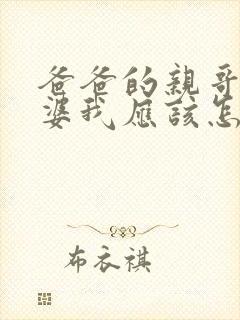 爸爸的親哥
婆我應該怎
布衣祺